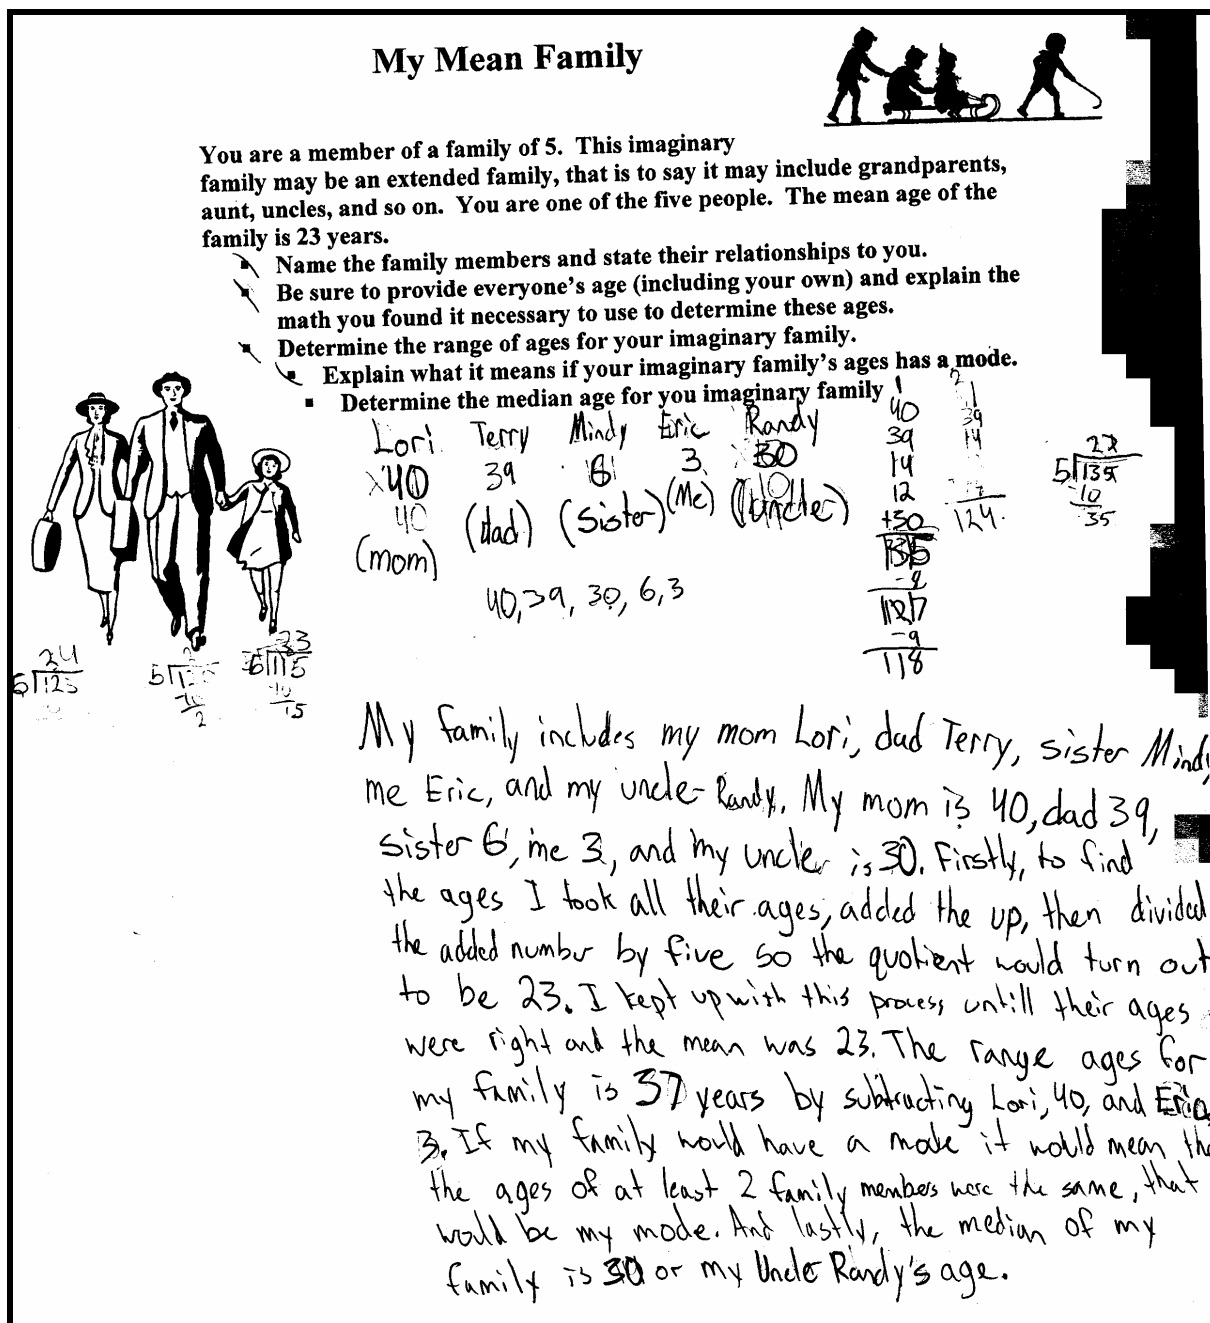 My Mean Family
You are a member of a family of 5. This imaginary
family may be an extended family, that is to say it may include grandparents,
aunt, uncles, and so on. You are one of the five people. The mean age of the
family is 23 years.
▪ Name the family members and state their relationships to you.
▪ Be sure to provide everyone's age (including your own) and explain the
math you found it necessary to use to determine these ages.
▪ Determine the range of ages for your imaginary family.
▪ Explain what it means if your imaginary family's ages has a mode.
▪ Determine the median age for you imaginary family
Lori Terry Mindy Eric Randy
40 39 6 3 30
40
(mom) (dad) (Sister) (Me) (Uncle)
40, 39, 30, 6, 3
40
39
14
12
+30
135
-8
127
-9
118
39
14
124
5)135
10
35
24
5)125
23
5)115
10
15
My family includes my mom Lori, dad Terry, sister Mindy
me Eric, and my uncle Randy. My mom is 40, dad 39,
sister 6, me 3, and my uncle is 30. Firstly, to find
the ages I took all their ages, added the up, then divided
the added number by five so the quotient would turn out
to be 23. I kept up with this process untill their ages
were right and the mean was 23. The range ages for
my family is 37 years by subtracting Lori, 40, and Eric,
3. If my family would have a mode it would mean
the ages of at least 2 family members were the same, that
would be my mode. And lastly, the median of my
family is 30 or my Uncle Randy's age.